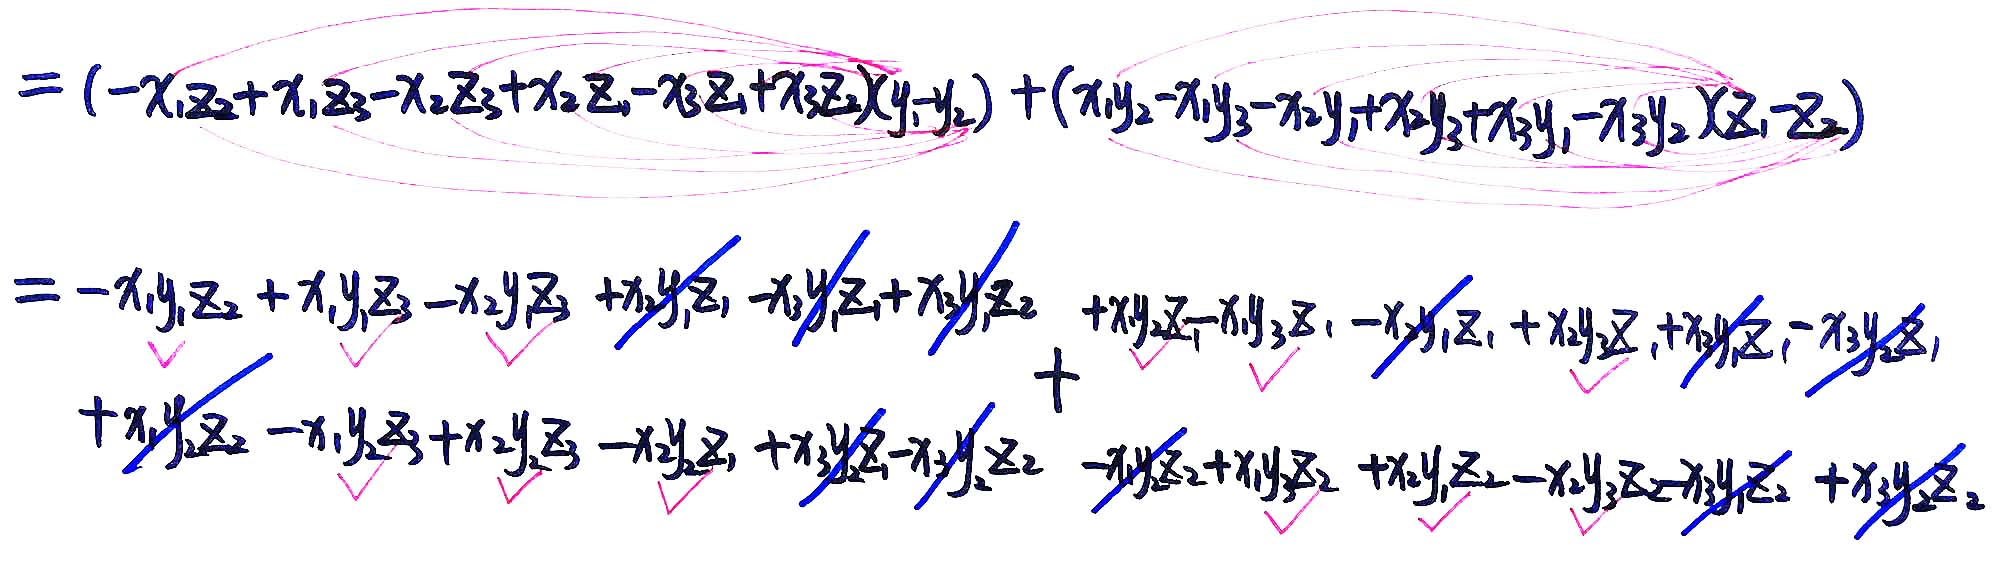 = (-x₁z₂+x₁z₃-x₂z₃+x₂z₁-x₃z₁+x₃z₂)(y₁-y₂) + (x₁y₂-x₁y₃-x₂y₁+x₂y₃+x₃y₁-x₃y₂)(z₁-z₂)
= -x₁y₁z₂ + x₁y₁z₃ - x₂y₁z₃ + x₂y₁z₁ - x₃y₁z₁ + x₃y₁z₂ + x₁y₂z₁ - x₁y₃z₁ - x₂y₁z₁ + x₂y₃z₁ + x₃y₁z₁ - x₃y₂z₁
+ x₁y₂z₂ - x₁y₂z₃ + x₂y₂z₃ - x₂y₂z₁ + x₃y₂z₁ - x₃y₂z₂ + - x₁y₂z₂ + x₁y₃z₂ + x₂y₁z₂ - x₂y₃z₂ - x₃y₁z₂ + x₃y₂z₂